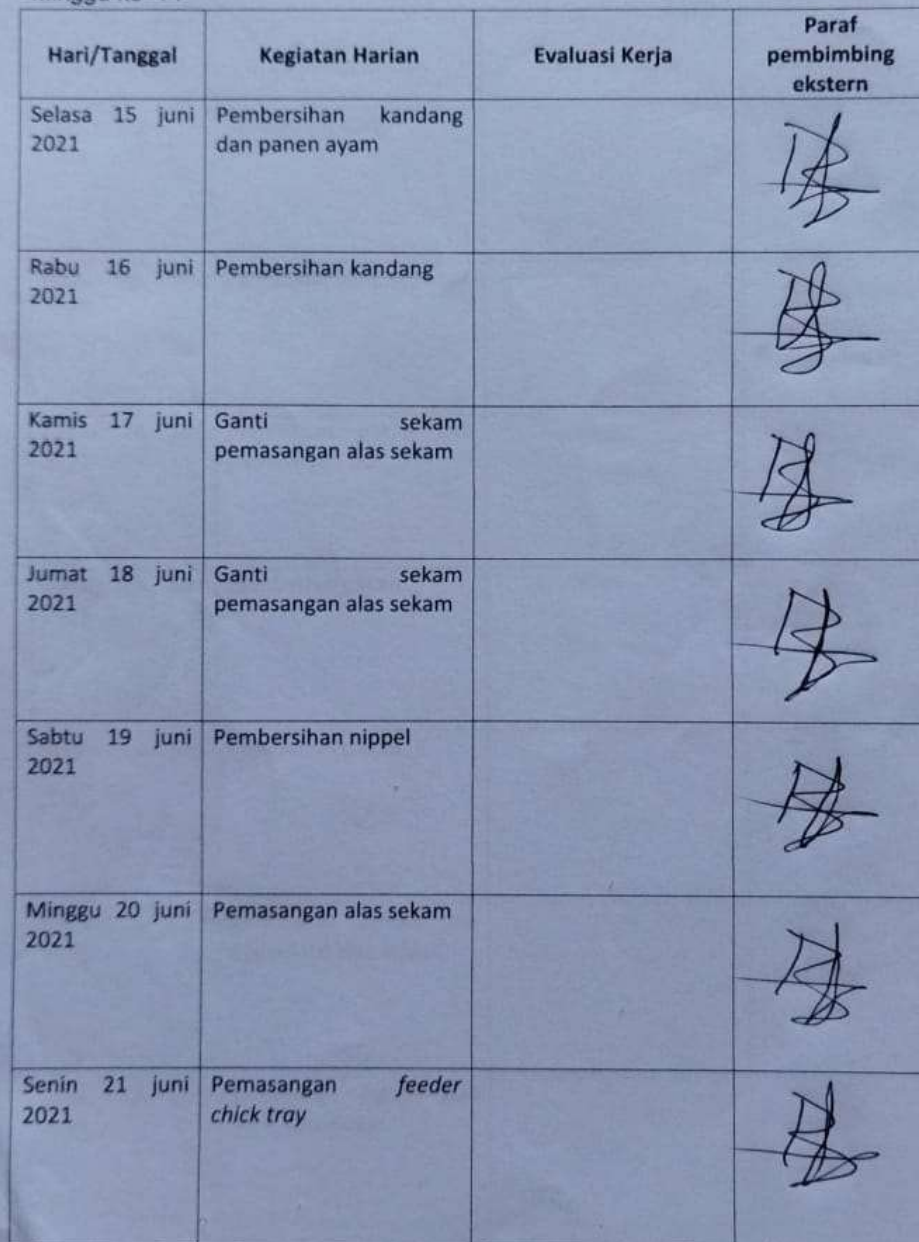 Hari/Tanggal Kegiatan Harian Evaluasi Kerja Paraf pembimbing ekstern
Selasa 15 juni 2021
Pembersihan kandang
dan panen ayam
Rabu 16 juni 2021
Pembersihan kandang
Kamis 17 juni 2021
Ganti sekam
pemasangan alas sekam
Jumat 18 juni 2021
Ganti sekam
pemasangan alas sekam
Sabtu 19 juni 2021
Pembersihan nippel
Minggu 20 juni 2021
Pemasangan alas sekam
Senin 21 juni 2021
Pemasangan feeder
chick tray